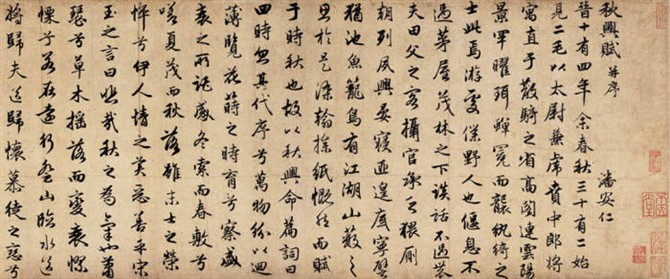 秋興賦 并序
潘安仁
晉十有四年余春秋三十有二始
見二毛以太尉兼虎賁中郎將
寓直于散騎之省高閣連雲陽
景罕曜珥蟬冕而襲紈綺之
士此焉游處僕野人也偃息不
過茅屋茂林之下談話不過農
夫田父之客攝官承乏猥厠
朝列夙興晏寢匪遑底寧譬
猶池魚籠鳥有江湖山藪之
思於是染翰操紙慨然而賦
于時秋也故以秋興命篇詞曰
四時忽其代序兮萬物紛以迴
薄覽花蒔之時育兮察盛
衰之所託感冬索而春敷兮
嗟夏茂而秋落雖末士之榮
悴兮伊人情之美惡善乎宋
玉之言曰悲哉秋之為氣也蕭
瑟兮草木搖落而變衰憀
慄兮若在遠行登山臨水送
將歸夫送歸懷慕徒之戀兮